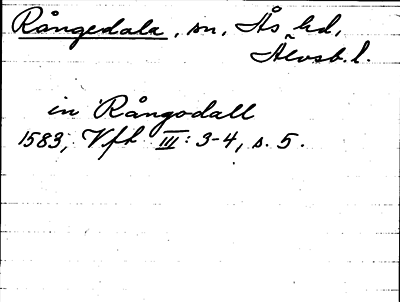 Rångedala, sn, Ås hd,
Älvsb. l.
in Rångodall
1583, Vfh III: 3-4, s. 5.